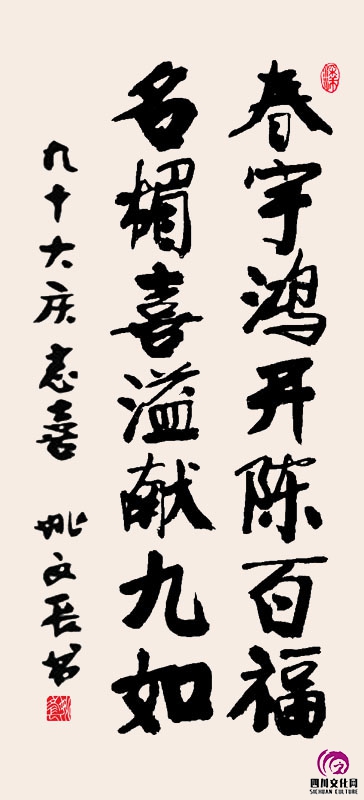 春宇鸿开陈百福
名楣喜溢献九如
九十大庆志喜 姚文长书
四川文化网
SICHUAN CULTURE